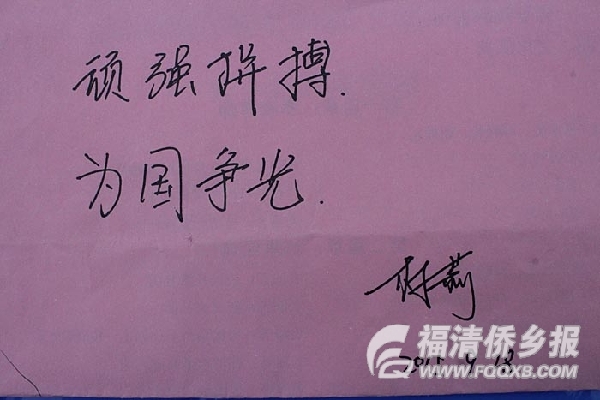 顽强拼搏.
为国争光.
林莉
福清侨乡报
WWW.FQQXB.COM